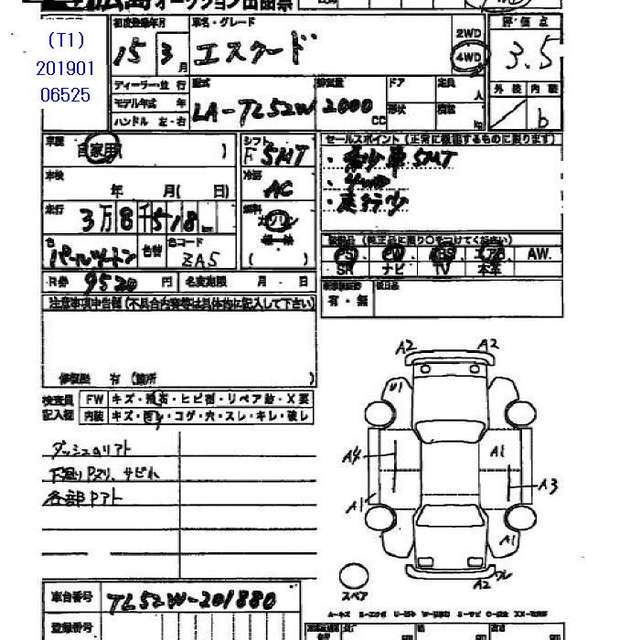 オークション出品票
(T1)
201901
06525
初度登録年月
15 3月
車名・グレード
エスクード
2WD
4WD
評価点
3.5
外装 内装
b
ディーラー・並行
モデル年式 年
ハンドル 左・右
型式
LA-TL52W
排気量
2000 CC
ドア
形状
定員 人
積載 kg
車歴
自家用( )
シフト
F5MT
セールスポイント(正常に機能するものに限ります)
・希少車5MT
・4WD
・走行少
車検
年 月( 日)
冷房
AC
走行
3万8千518km
燃料
ガソリン
色
パールツートン
色替
色コード
ZA5
PS PW ABS エアB AW
SR ナビ TV 本革
有・無
後日品
R券 9520円
名変期限 月 日
注意事項申告欄(不具合内容等は具体的に記入して下さい)
修復歴 有(箇所 )
検査員記入欄
FW キズ・飛石・ヒビ割・リペア跡・X要
内装 キズ・汚レ・コゲ・穴・スレ・キレ・破レ
ダッシュのリアト
下廻りPヌリ、サビれ
各部Pアト
A2 A2
U1
A4
A1
A3
A1
A1
A2
スペア
車台番号
TL52W-201880
登録番号